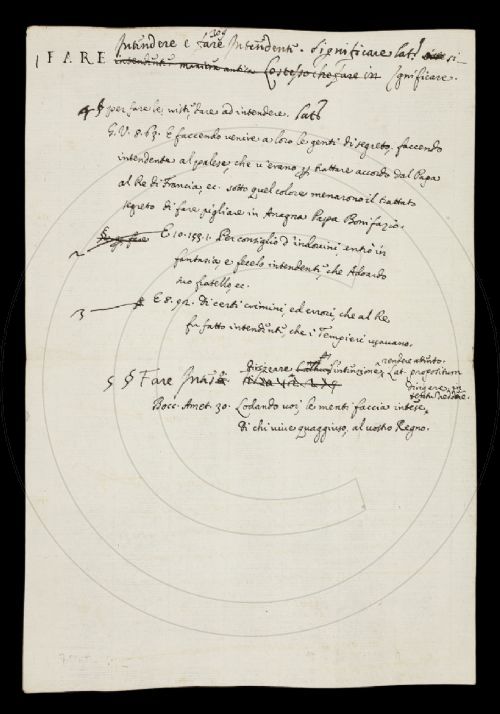 FARE
Intendere e fare Intendenti. Significare lat. si-
Lo stesso che, fare in gnificare.
4 § per far le visti, dare ad intendere. Lat.
G. V. 8. 63. E faccendo venire a loro le genti di segreto, faccendo
intendente al palese, che v'erano p trattare accordo dal Papa
al Re di Francia, ec. sotto quel colore menarono il trattato
segreto di fare pigliare in Anagna Papa Bonifazio.
2 E 10. 153. 1. Per consiglio d'indovini, entrò in
fantasia, e fecelo intendenti, che Adoardo
suo fratello, ec.
3 E 8. 92. Di certi crimini, ed errori, che al Re
fu fatto intendenti, che i Tempieri usavano.
rendere attento.
5 § Fare Dirizzare intenzione, Lat. propositum
dirigere, in
Bocc. Amet. 30. Lodando voi, le menti faccia intese,
Di chi vive quaggiuso, al vostro Regno.